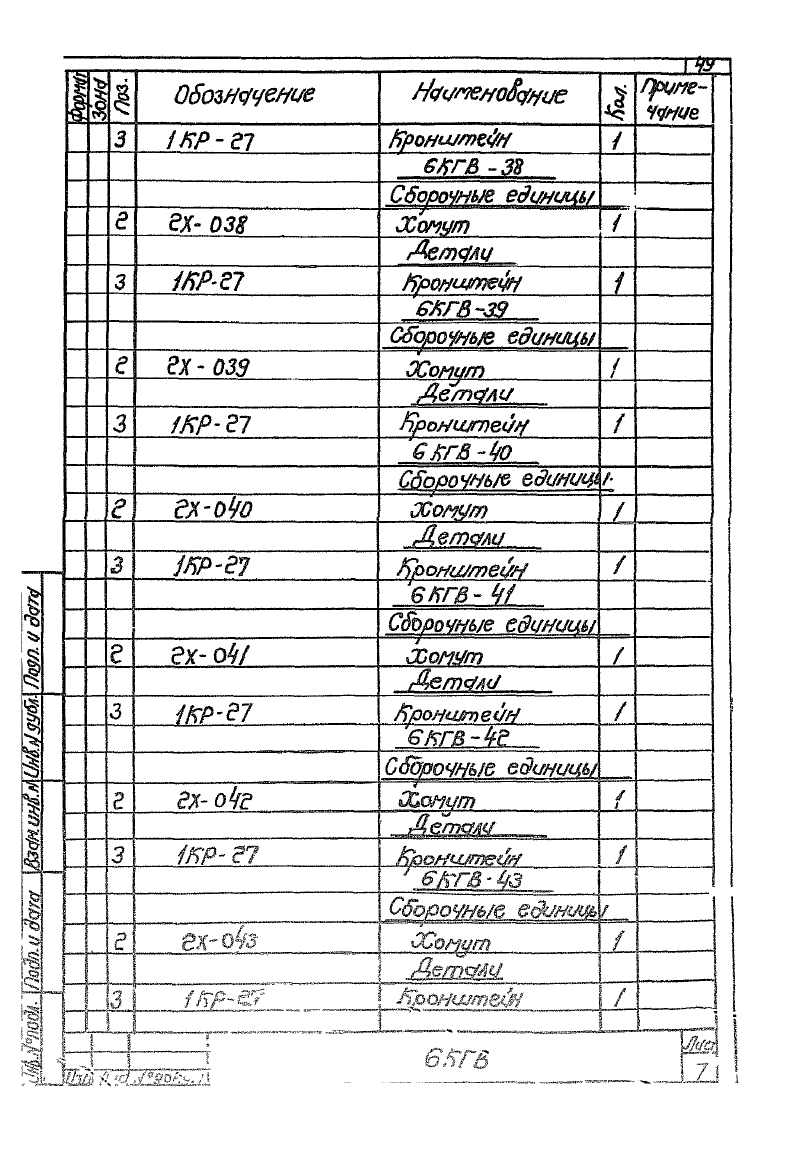 49
Формат Зона Поз. Обозначение Наименование Кол. Примечание
3 1КР-27 Кронштейн 1
6КГВ-38
Сборочные единицы
2 2Х-038 Хомут 1
Детали
3 1КР-27 Кронштейн 1
6КГВ-39
Сборочные единицы
2 2Х-039 Хомут 1
Детали
3 1КР-27 Кронштейн 1
6КГВ-40
Сборочные единицы
2 2Х-040 Хомут 1
Детали
3 1КР-27 Кронштейн 1
6КГВ-41
Сборочные единицы
2 2Х-041 Хомут 1
Детали
3 1КР-27 Кронштейн 1
6КГВ-42
Сборочные единицы
2 2Х-042 Хомут 1
Детали
3 1КР-27 Кронштейн 1
6КГВ-43
Сборочные единицы
2 2Х-043 Хомут 1
Детали
3 1КР-27 Кронштейн 1
Инв.№подл. Подп. и дата Взам.инв.№ Инв.№дубл. Подп. и дата
6КГВ
Лист
7